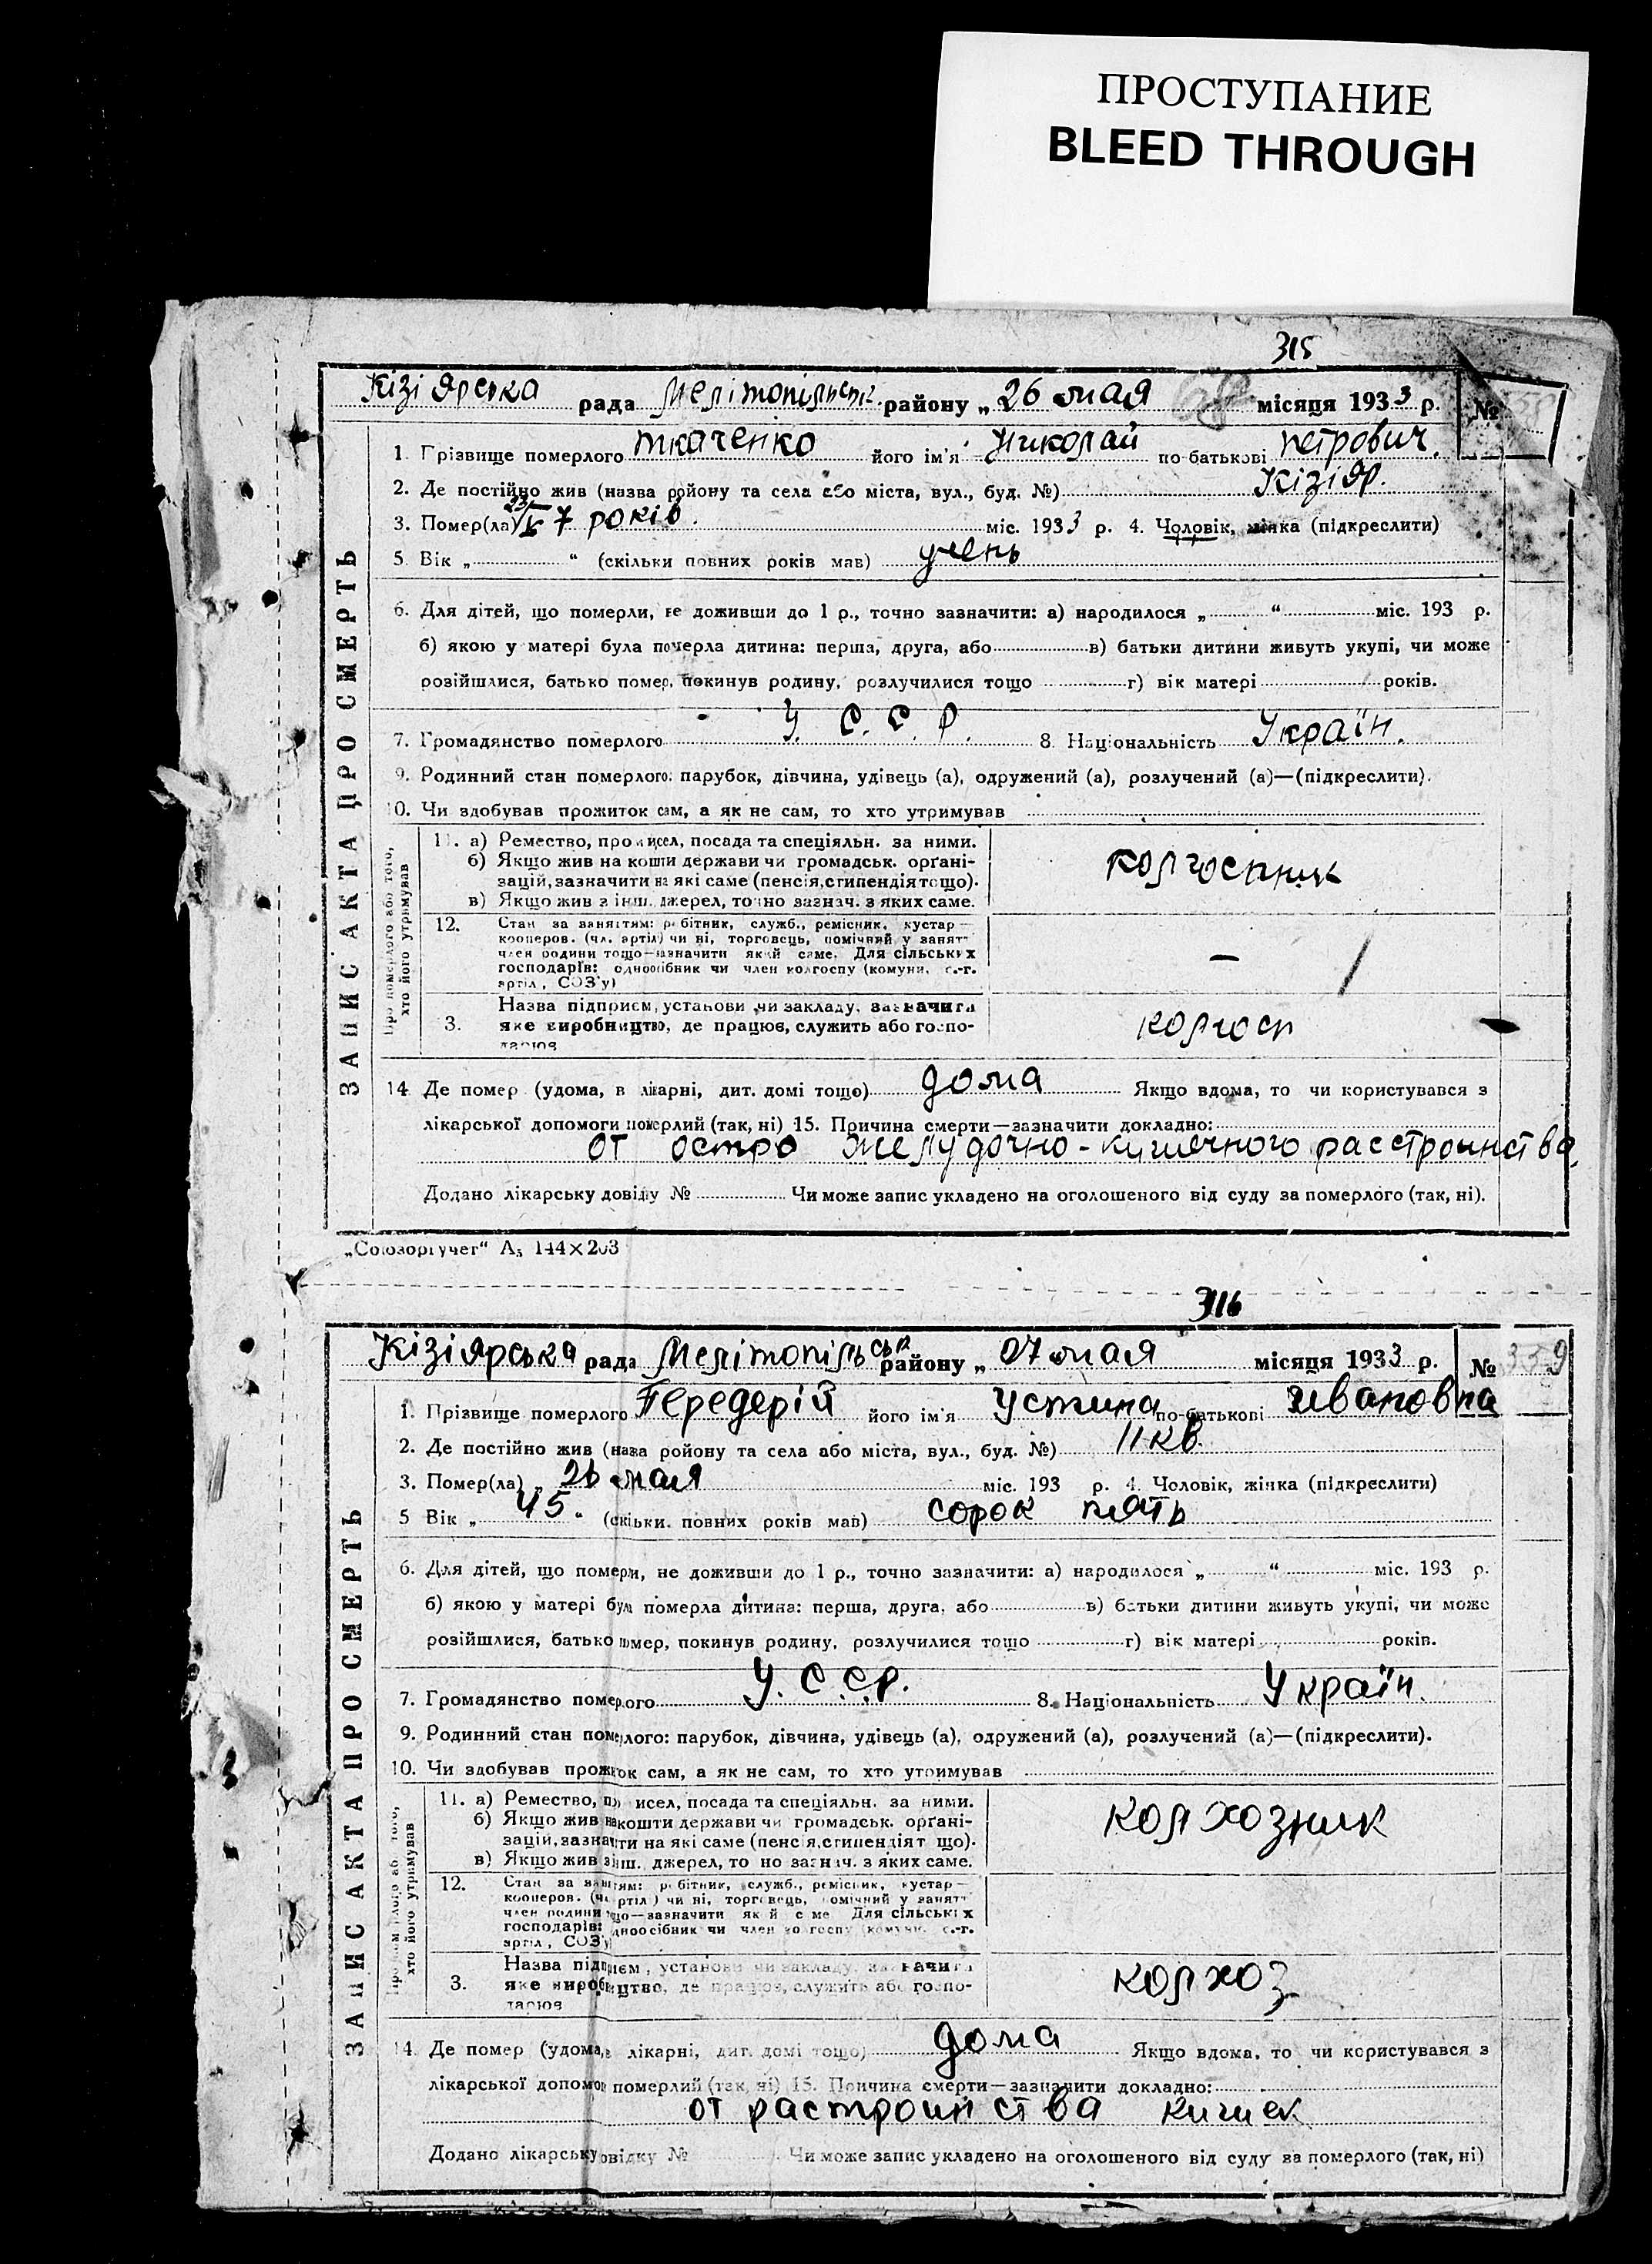 ПРОСТУПАНИЕ
BLEED THROUGH
315
Кізіярська рада Мелітопільськ. району „ 26 мая місяця 1933 р. №
ЗАПИС АКТА ПРО СМЕРТЬ
1. Прізвище померлого Ткаченко його ім'я Николай по-батькові Петрович.
2. Де постійно жив (назва району та села або міста, вул., буд. №) Кізіяр.
3. Помер(ла) 7 років. міс. 1933 р. 4. Чоловік, жінка (підкреслити)
5. Вік „ “ (скільки повних років мав) учень
6. Для дітей, що померли, не доживши до 1 р., точно зазначити: а) народилося „ “ міс. 193 р.
б) якою у матері була померла дитина: перша, друга, або в) батьки дитини живуть укупі, чи може
розійшлися, батько помер, покинув родину, розлучилися тощо г) вік матері років.
7. Громадянство померлого У. С. С. Р. 8. Національність Україн.
9. Родинний стан померлого: парубок, дівчина, удівець (а), одружений (а), розлучений (а)—(підкреслити).
10. Чи здобував прожиток сам, а як не сам, то хто утримував
Про померлого або того, хто його утримував
11. а) Ремество, промисел, посада та спеціяльн. за ними.
б) Якщо жив на кошти держави чи громадськ. орґані-
зацій, зазначити на які саме (пенсія, стипендія тощо).
в) Якщо жив з інш. джерел, точно зазнач. з яких саме.
колгоспник
12. Стан за заняттям: робітник, служб., ремісник, кустар—
кооперов. (чл. артіл) чи ні, торговець, помічний у занятт
член родини тощо—зазначити який саме. Для сільських
господарів: одноосібник чи член колгоспу (комуни, с.-г.
артіл, СОЗ'у)
—
3. Назва підприєм, установи чи закладу, зазначити
яке виробництво, де працює, служить або госпо-
дарює
колгосп
14. Де помер (удома, в лікарні, дит. домі тощо) дома Якщо вдома, то чи користувався з
лікарської допомоги померлий (так, ні) 15. Причина смерти—зазначити докладно:
от остро желудочно-кишечного расстроинства.
Додано лікарську довідку № Чи може запис укладено на оголошеного від суду за померлого (так, ні).
„Союзоргучет“ А₅ 144×203
316
Кізіярська рада Мелітопільськ району „ 07 мая місяця 1933 р. № 339
ЗАПИС АКТА ПРО СМЕРТЬ
1. Прізвище померлого Передерій його ім'я Устина по-батькові Ивановна
2. Де постійно жив (назва району та села або міста, вул., буд. №) 11 кв.
3. Помер(ла) „ 26 мая міс. 193 р. 4. Чоловік, жінка (підкреслити)
5 Вік „ 45. (скільки повних років мав) сорок пять
6. Для дітей, що померли, не доживши до 1 р., точно зазначити: а) народилося „ “ міс. 193 р.
б) якою у матері була померла дитина: перша, друга, або в) батьки дитини живуть укупі, чи може
розійшлися, батько помер, покинув родину, розлучилися тощо г) вік матері років.
7. Громадянство померлого У. С. С. Р. 8. Національність Україн.
9. Родинний стан померлого: парубок, дівчина, удівець (а), одружений (а), розлучений (а)—(підкреслити).
10. Чи здобував прожиток сам, а як не сам, то хто утримував
Про померлого або того, хто його утримував
11. а) Ремество, промисел, посада та спеціяльн. за ними.
б) Якщо жив на кошти держави чи громадськ. орґані-
зацій, зазначити на які саме (пенсія, стипендія тощо).
в) Якщо жив з інш. джерел, точно зазнач. з яких саме.
колхозник
12. Стан за заняттям: робітник, служб., ремісник, кустар—
кооперов. (чл. артіл) чи ні, торговець, помічний у занятт
член родини тощо—зазначити який саме Для сільських
господарів: одноосібник чи член колгоспу (комуни, с.-г.
артіл, СОЗ'у)
3. Назва підприєм, установи чи закладу, зазначити
яке виробництво, де працює, служить або госпо-
дарює
колхоз
14. Де помер (удома, в лікарні, дит. домі тощо) дома Якщо вдома, то чи користувався з
лікарської допомоги померлий (так, ні) 15. Причина смерти—зазначити докладно:
от растроинства кишек
Додано лікарську довідку № Чи може запис укладено на оголошеного від суду за померлого (так, ні)